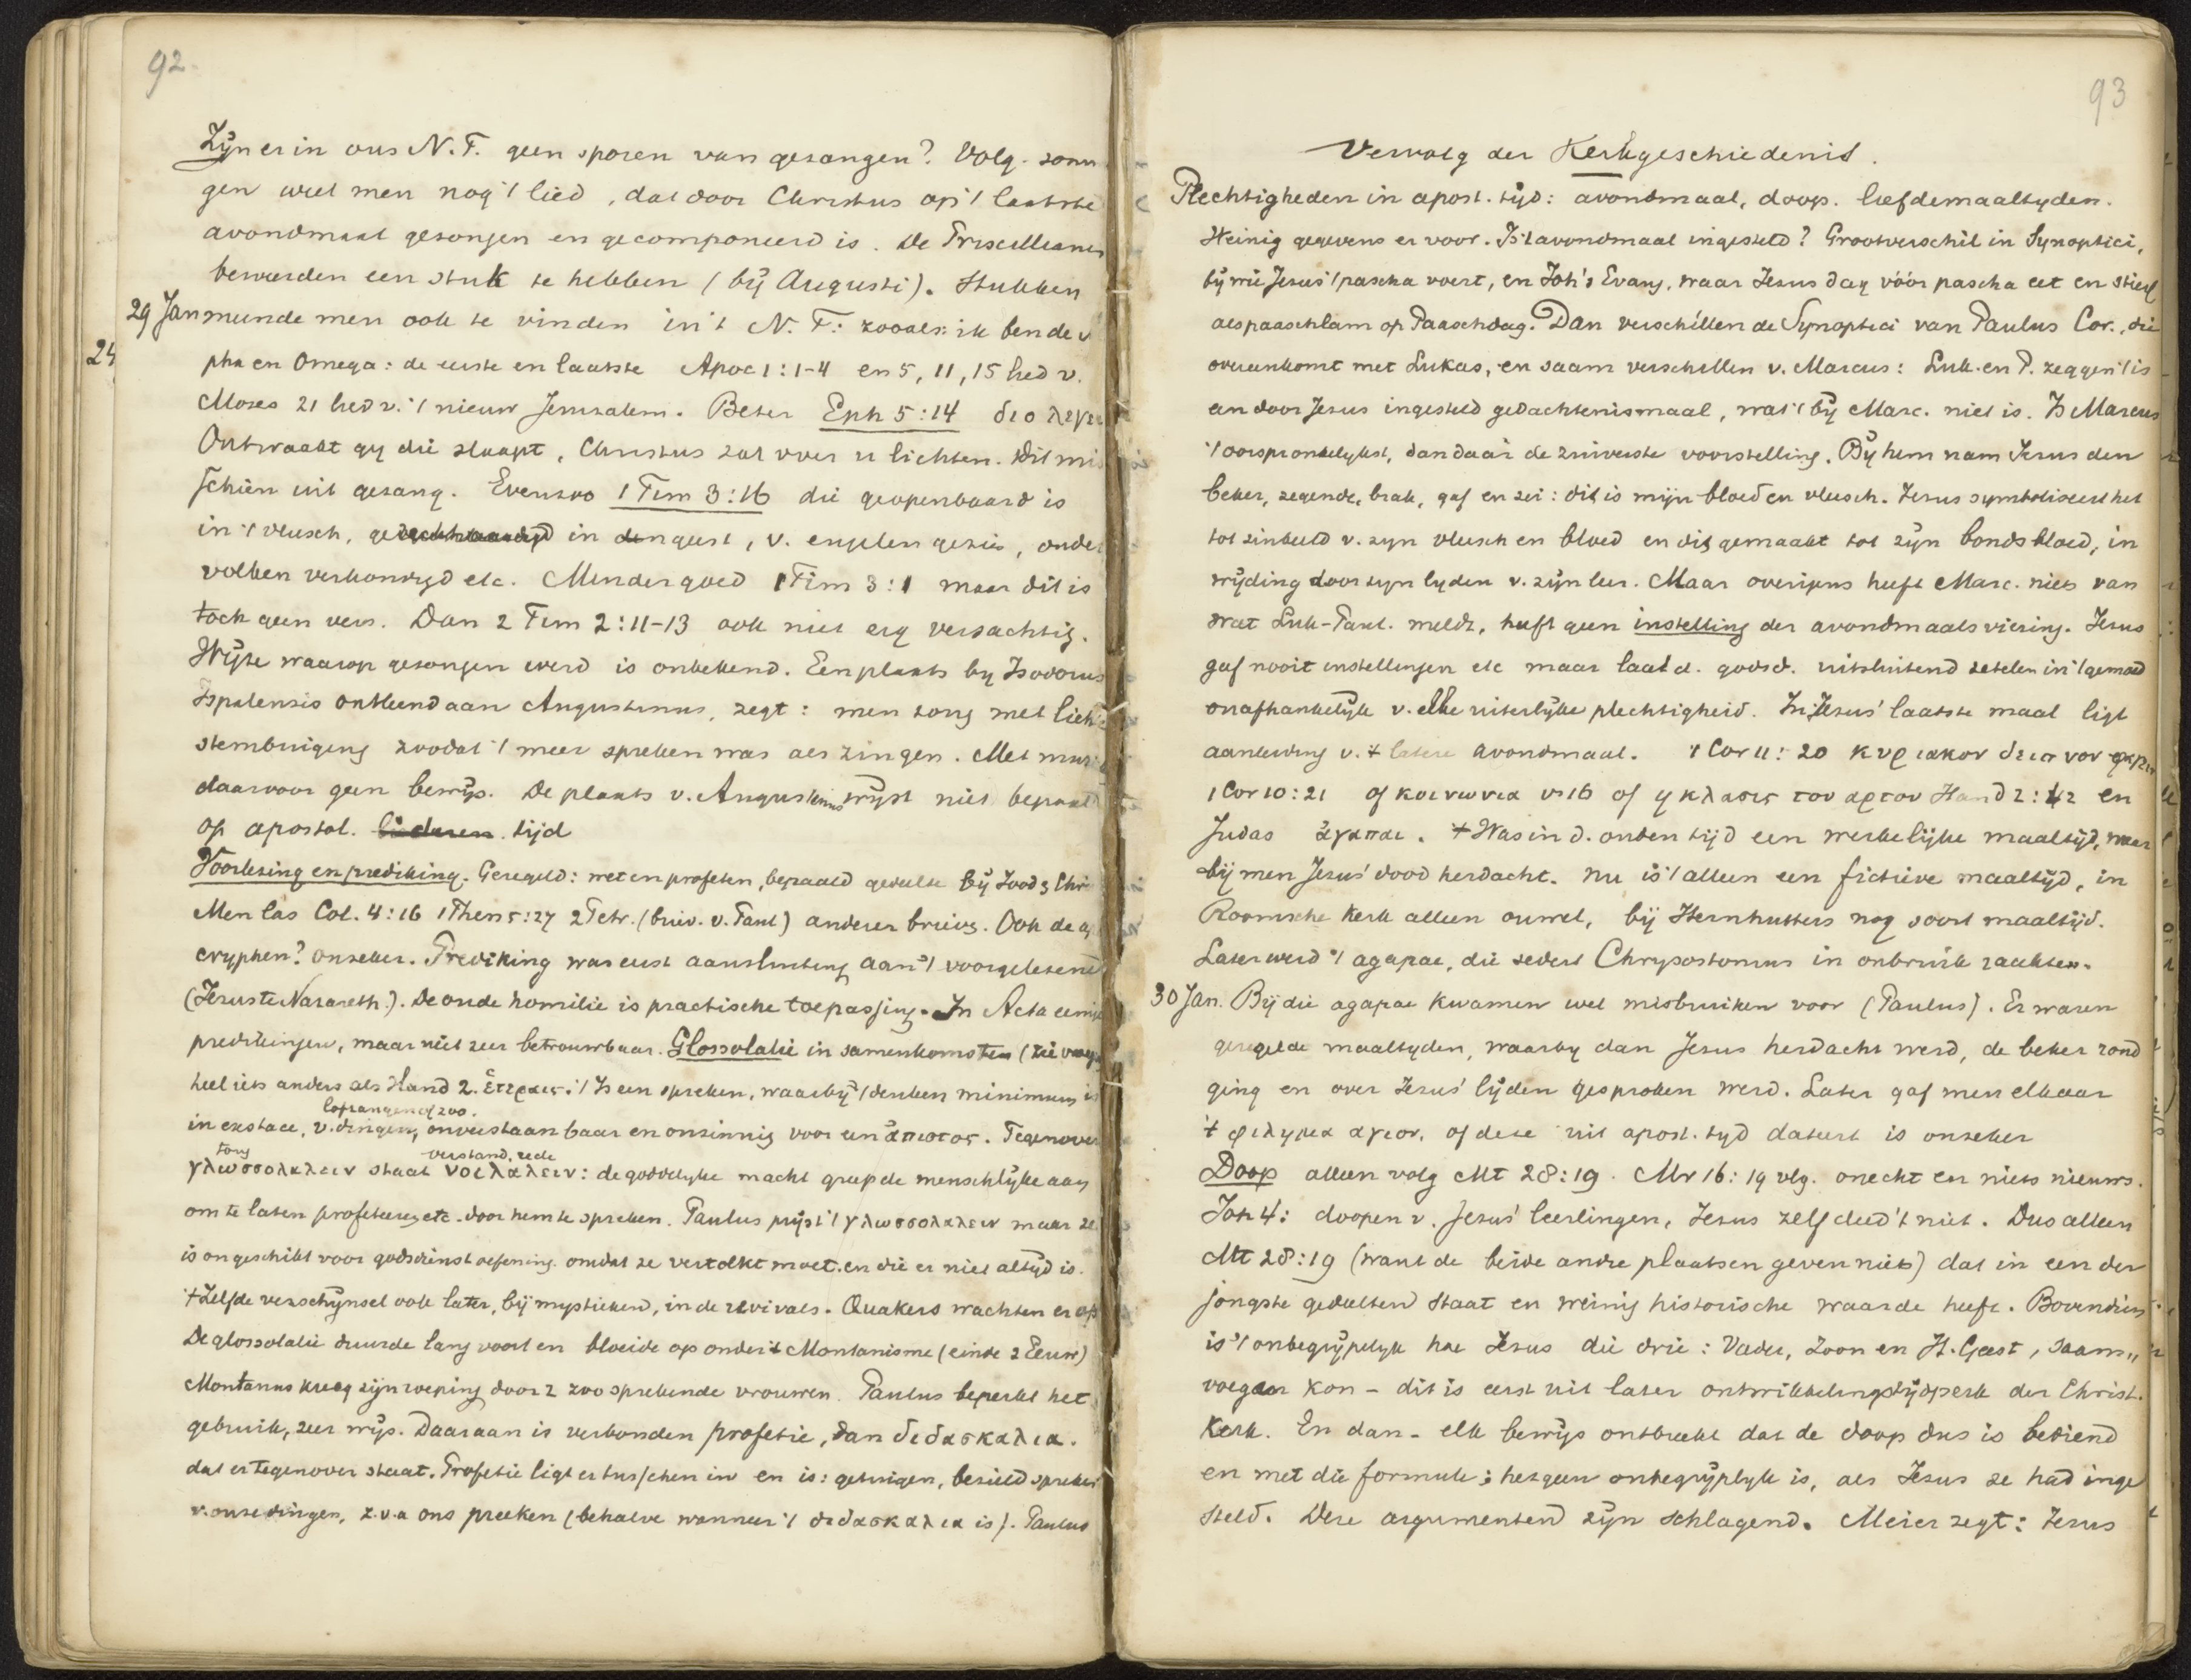 92.
Zijn er in ons N.T. geen sporen van gezangen? Volg. som
gen weet men nog 't lied, dat door Christus op 't laatste
avondmaal gezongen en gecomponeerd is. De Priscillianen
beweerden een stuk te hebben (bij Augusti). Stukken
29 Jan meende men ook te vinden in 't N.T: zooals: ik ben de
24
pha en Omega: de eerste en laatste Apoc 1:1-4 en 5, 11, 15 lied v.
Mozes 21 lied v. 't nieuw Jeruzalem. Beter Eph 5:14 διο λεγει
Ontwaakt gy die slaapt, Christus zal over u lichten. Dit mis
schien uit gezang. Evenzoo 1 Tim 3:16 die geopenbaard is
in 't vleesch, gerechtvaardigd in den geest, v. engelen gezien, onder
volken verkondigd etc. Minder goed 1 Tim 3:1 maar dit is
toch geen vers. Dan 2 Tim 2:11-13 ook niet erg versachtig.
Wijze waarop gezongen werd is onbekend. Een plaats by Isodorus
Ispalensis ontleend aan Augustinus, zegt: men zong met lichte
stembuiging zoodat 't meer spreken was als zingen. Met muz
daarvoor geen bewijs. De plaats v. Augustinus wijst niet bepaald
op apostol. tijd
Voorlezing en prediking. Geregeld: wet en profeten, bepaald gedeelte bij Jood, Chr
Men las Col. 4:16 1 Thess 5:27 2 Petr. (briev. v. Paul) anderer brieven. Ook de a
cryphen? onzeker. Prediking was eerst aansluiting aan 't voorgelezene
(Jezus te Nazareth). De oude homilie is practische toepassing. In Acta eenige
predikingen, maar niet zeer betrouwbaar. Glossolalie in samenkomsten
heel iets anders als Hand 2. ἑτεραις. 't Is een spreken, waarbij 't denken minimum is
lofzangen of zoo.
in exstace, v. dingen, onverstaanbaar en onzinnig voor een ἀπιστος. Tegenover
tong verstand, rede
γλωσσολαλειν staat νοι λαλειν: de goddelyke macht greep de menschlijke aan
om te laten profeteeren etc. door hem te spreken. Paulus prijst 't γλωσσολαλειν maar ze
is ongeschikt voor godsdienstoefening. omdat ze vertolkt moet. en die er niet altyd is.
't Zelfde verschijnsel ook later, bij mystieken, in de revivals. Quakers wachten er op
De glossolalie duurde lang voort en bloeide op onder 't Montanisme (einde 2 Eeuw)
Montanus kreeg zijn roeping door 2 zoo sprekende vrouwen. Paulus beperkt het
gebruik, zeer wijs. Daaraan is verbonden profetie, dan διδασκαλια.
dat er tegenover staat. Profetie ligt er tusschen in en is: getuigen, bezield spreken
v. onze dingen, z.v.a ons preeken (behalve wanneer 't διδασκαλια is). Paulus
93
Vervolg der Kerkgeschiedenis.
Plechtigheden in apost. tijd: avondmaal, doop. liefdemaaltyden.
Weinig gegevens er voor. Is 't avondmaal ingesteld? Groot verschil in Synoptici,
bij wie Jezus 't pascha viert, en Joh's Evang. waar Jezus dag vóór pascha eet en stierf
als paaschlam op Paaschdag. Dan verschillen de Synoptici van Paulus Cor., die
overeenkomt met Lukas, en saam verschillen v. Marcus: Luk. en P. zeggen 't is
een door Jezus ingesteld gedachtenismaal, wat 't bij Marc. niet is. Is Marcus
't oorspronkelykst, dan daar de zuiverste voorstelling. Bij hem nam Jezus den
beker, zegende, brak, gaf en zei: dit is mijn bloed en vleesch. Jezus symboliseert het
tot zinbeeld v. zyn vleesch en bloed en dit gemaakt tot zijn bondsbloed, in
wijding door zyn lyden v. zijn leer. Maar overigens heeft Marc. niets van
wat Luk-Paul. meldt, heeft geen instelling der avondmaalsviering. Jezus
gaf nooit instellingen etc maar laat d. godsd. uitsluitend zetelen in 't gemoed
onafhankelijk v. elke uiterlijke plechtigheid. In Jezus' laatste maal ligt
aanleiding v. 't latere avondmaal. 1 Cor 11:20 κυριακον δειπνον
1 Cor 10:21 of κοινωνια vs 16 of η κλασις του αρτου Hand 2:42 en
Judas ἀγαπαι. 't Was in d. ouden tijd een werkelijke maaltijd, waar
bij men Jezus' dood herdacht. Nu is 't alleen een fictieve maaltijd, in
Roomsche Kerk alleen ouwel, bij Hernhutters nog soort maaltijd.
Later werd 't agapae, die sedert Chrysostomus in onbruik raakten.
30 Jan. Bij die agapae kwamen wel misbruiken voor (Paulus). Er waren
geregelde maaltyden, waarby dan Jezus herdacht werd, de beker rond
ging en over Jezus' lijden gesproken werd. Later gaf men elkaar
't φιλημα αγιον, of deze uit apost. tyd dateert is onzeker
Doop alleen volg Mt 28:19. Mr 16:19 vlg. onecht en niets nieuws.
Joh 4: doopen v. Jezus' leerlingen, Jezus zelf deed 't niet. Dus alleen
Mt 28:19 (want de beide andre plaatsen geven niets) dat in een der
jongste gedeelten staat en weinig historische waarde heeft. Bovendien
is 't onbegrijpelyk hoe Jezus die drie: Vader, Zoon en H. Geest, saam„
voegen kon – dit is eerst uit later ontwikkelingstijdperk der Christ.
Kerk. En dan – elk bewijs ontbreekt dat de doop dus is bediend
en met die formule; hetgeen onbegrijplyk is, als Jezus ze had inge
steld. Deze argumenten zijn schlagend. Meier zegt: Jezus